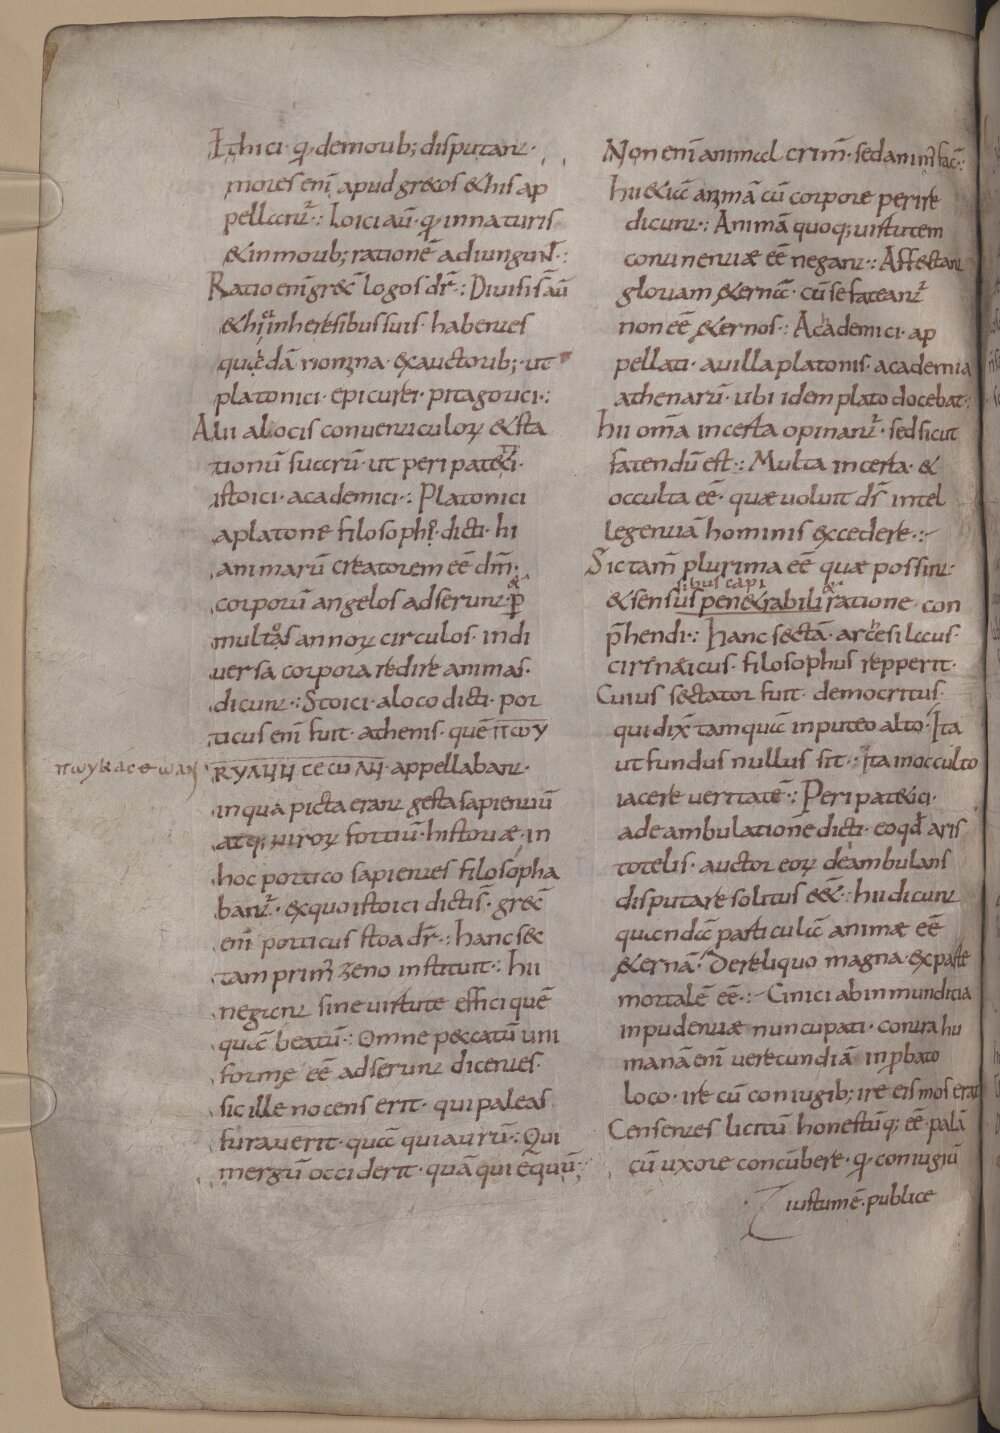 Ithici· qđ demorib; disputant·
mores enī apud grecos & his ap
pellant᷑·: Loici aū· qđ in naturis
& in morib; rationē adiungunt·:
Ratio enī grec̄ logos dr̄·: Diuisi s̄ aū
& hi in heresibus suis· habentes
quędā nomina· ex auctorib;· ut
platonici· epicurei· pitagorici·:
Alii a locis conuenticuloꝝ & sta
tionū suarū· ut peripatetici·
istoici· academici·: Platonici
a platone filosophi· dicti· hii
animarū creatorem eē dm̄·
corporū angelos adserunt· & ꝑ
multos annoꝝ circulos· in di
uersa corpora redire animas·
dicunt·: Stoici· a loco dicti· por
ticus enī fuit· athenis· quē πωυ
κυλημ σεωλη· appellabant·
πωυκασεωαη
in qua picta erant gesta sapientiū
atq; uiroꝝ fortiū· historiæ· in
hoc portico sapientes filosopha
bant᷑· ex quo istoici dicti s̄· grec̄
enī porticus stoa dr̄·: hanc sec
tam prim̄ zeno instituit·: hii
negant sine uirtute effici quē
quā beatū·: Omne peccatū uni
forme eē adserunt dicentes·
sic ille nocens erit· qui paleas
furauerit· quā qui aurū·: Qui
mergū occiderit· quā qui equū·:
Non enī animal crim̄· sed anim̄ fac̄·:
hii etiā animā cū corpore perire
dicunt·: Animā quoq; uirtutem
contineruiæ eē negant·: Affectant
gloriam &ernā· cū se fateant᷑
non eē &ernos·: Academici· ap
pellati· a uilla platonis· academia
athenarū· ubi idem plato docebat·:
hii om̄a incerta opinant᷑· sed sicut
fatendū est·: Multa incerta· &
occulta eē· quæ uoluit ds̄ intel
legentiā hominis excedere·:
Sic tam̄ plurima eē quæ possint·
sibus capi &
& sensus penetrabili ratione con
p̄hendi·: hanc sectā· archesilaus·
cirinaicus· filosophus repperit·
Cuius sectator fuit· democritus·
qui dix̄ tamquā in puteo alto· Ita
ut fundus nullus sit·: ita in occulto
iacere ueritatē·: Peripat&ici·
a deambulatione dicti· eo qđ aris
totelis· auctor eoꝝ deambulans
disputare solitus eēt·: hii dicunt
quandā particulā animæ eē
&ernā· De reliquo magna· ex parte
mortalē eē·: Cinici ab inmunditia
inpudentiæ nuncupati· contra hu
manā enī uerecundiā in ꝓbato
loco· ire cū coniugib; ire eis mos erat
Censentes licitū honestūq; eē· palā
cū uxore concūbere· qđ coniugiū
iustum ē· publice